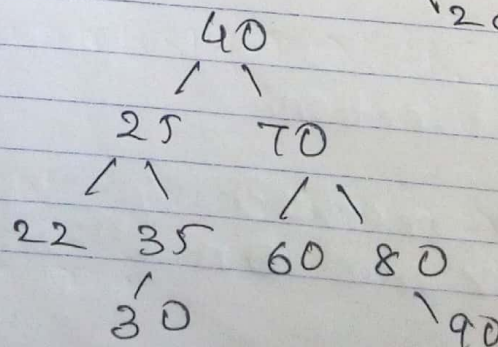 40
25 70
22 35 60 80
30 90